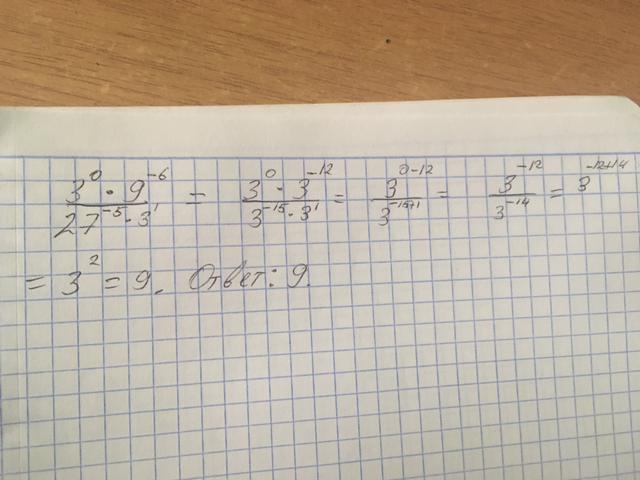 3⁰ · 9⁻⁶ / 27⁻⁵ · 3¹ = 3⁰ · 3⁻¹² / 3⁻¹⁵ · 3¹ = 3⁰⁻¹² / 3⁻¹⁵⁺¹ = 3⁻¹² / 3⁻¹⁴ = 3⁻¹²⁺¹⁴
= 3² = 9. Ответ: 9.